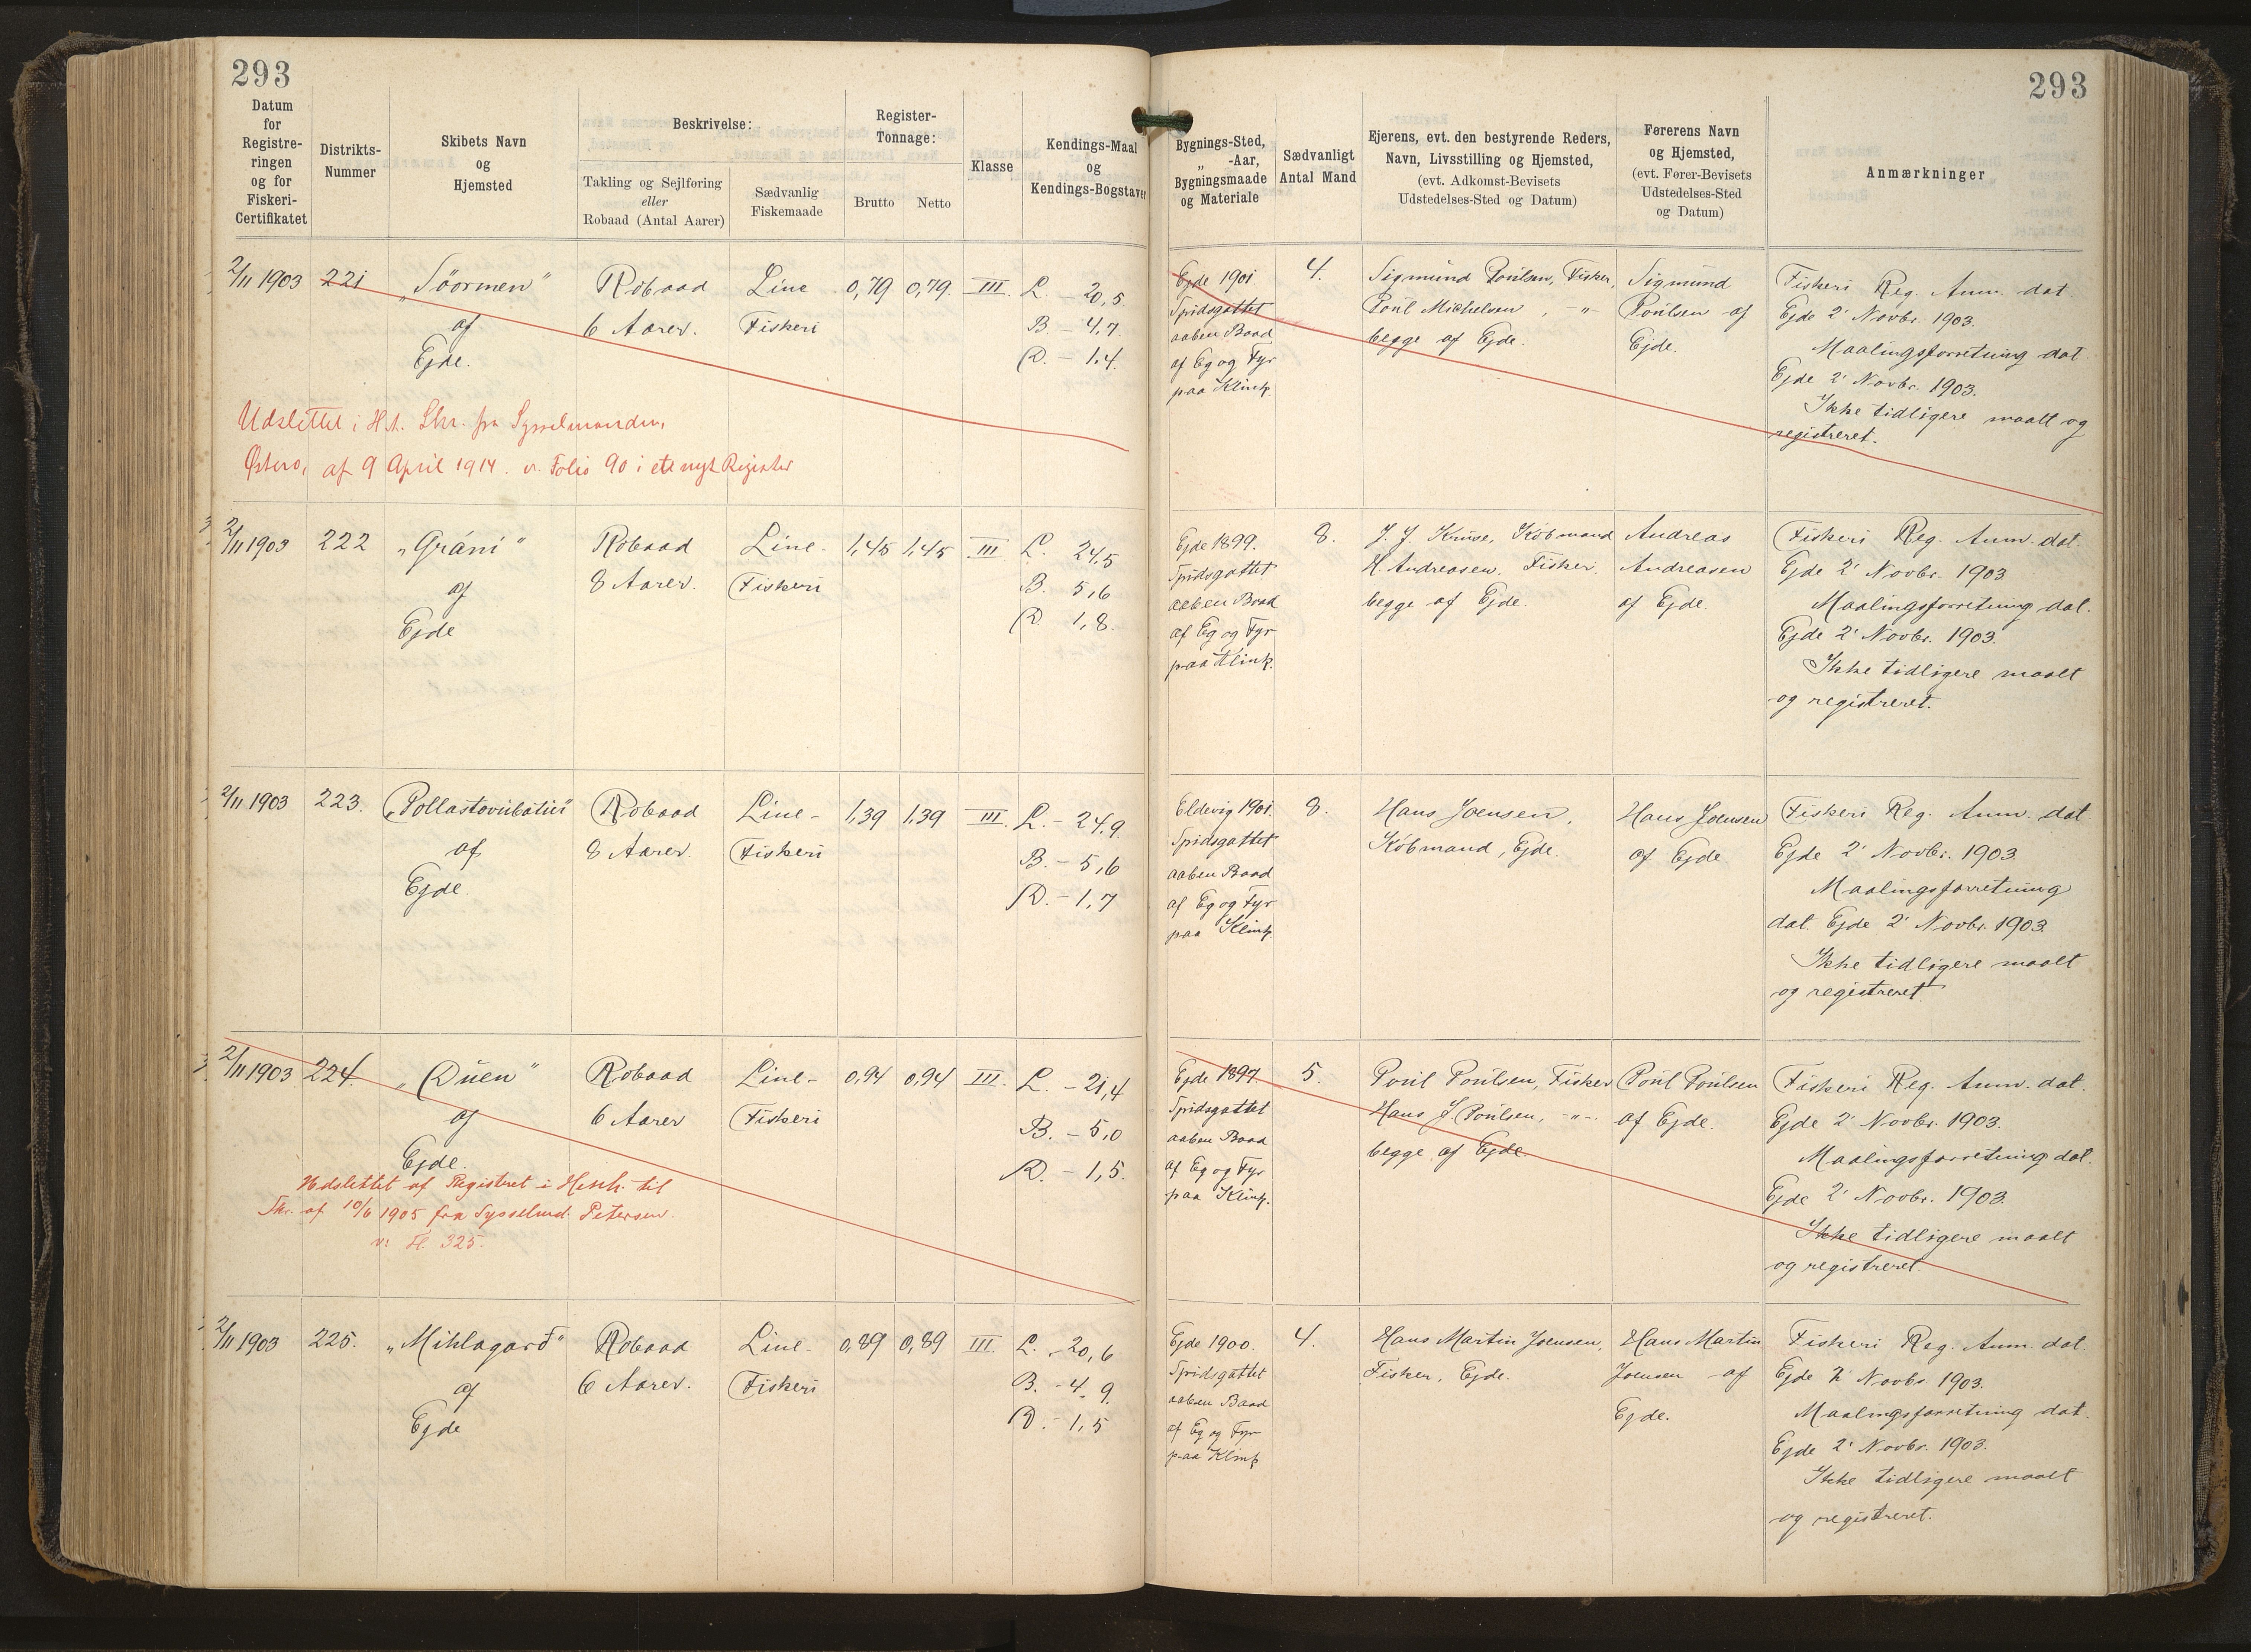 293
293
Datum
for
Registre-
ringen
og for
Fiskeri-
Certifikatet
Distrikts-
Nummer
Skibets Navn
og
Hjemsted
Beskrivelse:
Takling og Sejlføring
eller
Robaad (Antal Aarer)
Sædvanlig
Fiskemaade
Register-
Tonnage:
Brutto
Netto
Klasse
Kendings-Maal
og
Kendings-Bogstaver
Bygnings-Sted,
„ -Aar,
Bygningsmaade
og Materiale
Sædvanligt
Antal Mand
Ejerens, evt. den bestyrende Reders,
Navn, Livsstilling og Hjemsted,
(evt. Adkomst-Bevisets
Udstedelses-Sted og Datum)
Førerens Navn
og Hjemsted,
(evt. Fører-Bevisets
Udstedelses-Sted
og Datum)
Anmærkninger
2/11 1903
221
„Söormen"
af
Ejde.
Robaad
6 Aarer.
Line
Fiskeri
0,79
0,79.
III.
L. - 20,5
B. - 4,7.
D. - 1,4.
Ejde 1901
Spidsgattet
aaben Baad
af Eg og Fyr
paa Klink
4.
Sigmund Poulsen, Fisker,
Poul Michelsen, -"-
begge af Ejde.
Sigmund
Poulsen af
Ejde.
Fiskeri Reg. Anm. dat
Ejde 2' Novbr. 1903.
Maalingsforretning dat.
Ejde 2' Novbr. 1903.
Ikke tidligere maalt og
registreret.
Udslettet i H.t. Skr. fra Sysselmanden,
Østerø, af 9 April 1914. v. Folio 90 i et nyt Register
2/11 1903
222
„Gráni"
af
Ejde
Robaad
8 Aarer.
Line-
Fiskeri
1,45
1,45
III
L. 24,5
B. 5,6
D. 1,8.
Ejde 1899.
Spidsgattet
aaben Baad
af Eg og Fyr
paa Klink.
8.
J. J. Kruse, Købmand
H Andreasen, Fisker.
begge af Ejde.
Andreas
Andreasen
af Ejde.
Fiskeri Reg. Anm. dat
Ejde 2' Novbr. 1903
Maalingsforretning dat.
Ejde 2' Novbr. 1903.
Ikke tidligere maalt
og registreret.
2/11 1903
223.
„Pollastovubatur"
af
Ejde.
Robaad
8 Aarer.
Line-
Fiskeri
1,39
1,39
III.
L. - 24,9.
B. - 5,6
D. - 1,7
Eldevig 1901.
Spidsgattet
aaben Baad
af Eg og Fyr
paa Klink
8.
Hans Joensen,
Købmand, Ejde.
Hans Joensen
af Ejde
Fiskeri Reg. Anm. dat
Ejde 2' Novbr. 1903.
Maalingsforretning
dat. Ejde 2' Novbr. 1903.
Ikke tidligere maalt
og registreret
2/11 1903
224.
„Duen"
af
Ejde.
Robaad
6 Aarer
Line-
Fiskeri
0,94
0,94
III.
L. - 21,4
B. - 5,0
D. - 1,5.
Ejde 1897.
Spidsgattet
aaben Baad
af Eg og Fyr
paa Klink.
5.
Poul Poulsen, Fisker
Hans J. Poulsen, -"-.
begge af Ejde.
Poul Poulsen
af Ejde.
Fiskeri Reg. Anm. dat.
Ejde 2' Novbr. 1903.
Maalingsforretning dat.
Ejde 2' Novbr. 1903.
Ikke tidligere maalt
og registreret.
Udslettet af Registret i Henh. til
Skr. af 10/6 1905 fra Sysselmd. Petersen.
v: Fl. 325.
2/11 1903
225.
„Miklagard"
af
Ejde
Robaad
6 Aarer.
Line-
Fiskeri
0,89
0,89
III.
L. - 20,6
B. - 4,9.
D. - 1,5
Ejde 1900.
Spidsgattet
aaben Baad
af Eg og Fyr
paa Klink
4.
Hans Martin Joensen,
Fisker, Ejde.
Hans Martin
Joensen af
Ejde.
Fiskeri Reg. Anm. dat.
Ejde 2' Novbr 1903.
Maalingsforretning dat.
Ejde 2' Novbr. 1903.
Ikke tidligere maalt
og registreret.